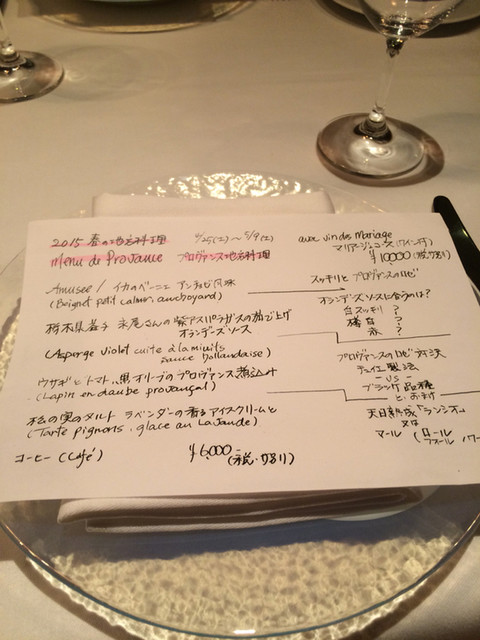 2015 春の地方料理 4/25(土)～5/9(土)
Menu de Provance プロヴァンス地方料理
Amusee / イカのベーニエ アンチョビ風味
(Beignet petit calmar auchoyard)
栃木県益子 永尾さんの紫アスパラガスの茹で上げ
オランデーズソース
(Asperge violet cuite à la minuits
sauce hollandaise)
ウサギとトマト、黒オリーブのプロヴァンス煮込み
(Lapin en daube provançal)
松の実のタルト ラベンダーの香るアイスクリームと
(Tarte pignons, glace au Lavande)
コーヒー (Café) ¥6,000 (税・サ別り)
avec vin des Mariage
マリアージュコース (ワイン付)
¥10000 (税、サ別り)
スッキリと プロヴァンスのロゼ
オランデーズソースに合うのは?
白スッキリ ?
樽白 ?
赤 ?
プロヴァンスのロゼ 対決
-VS-
ブラック品種
天日熟成 "ランシオ"
又は
マール (ロール